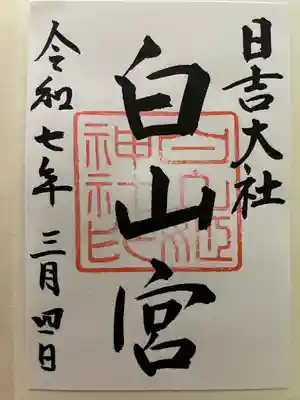 日吉大社
白山宮
白山姫神社印
令和七年三月四日